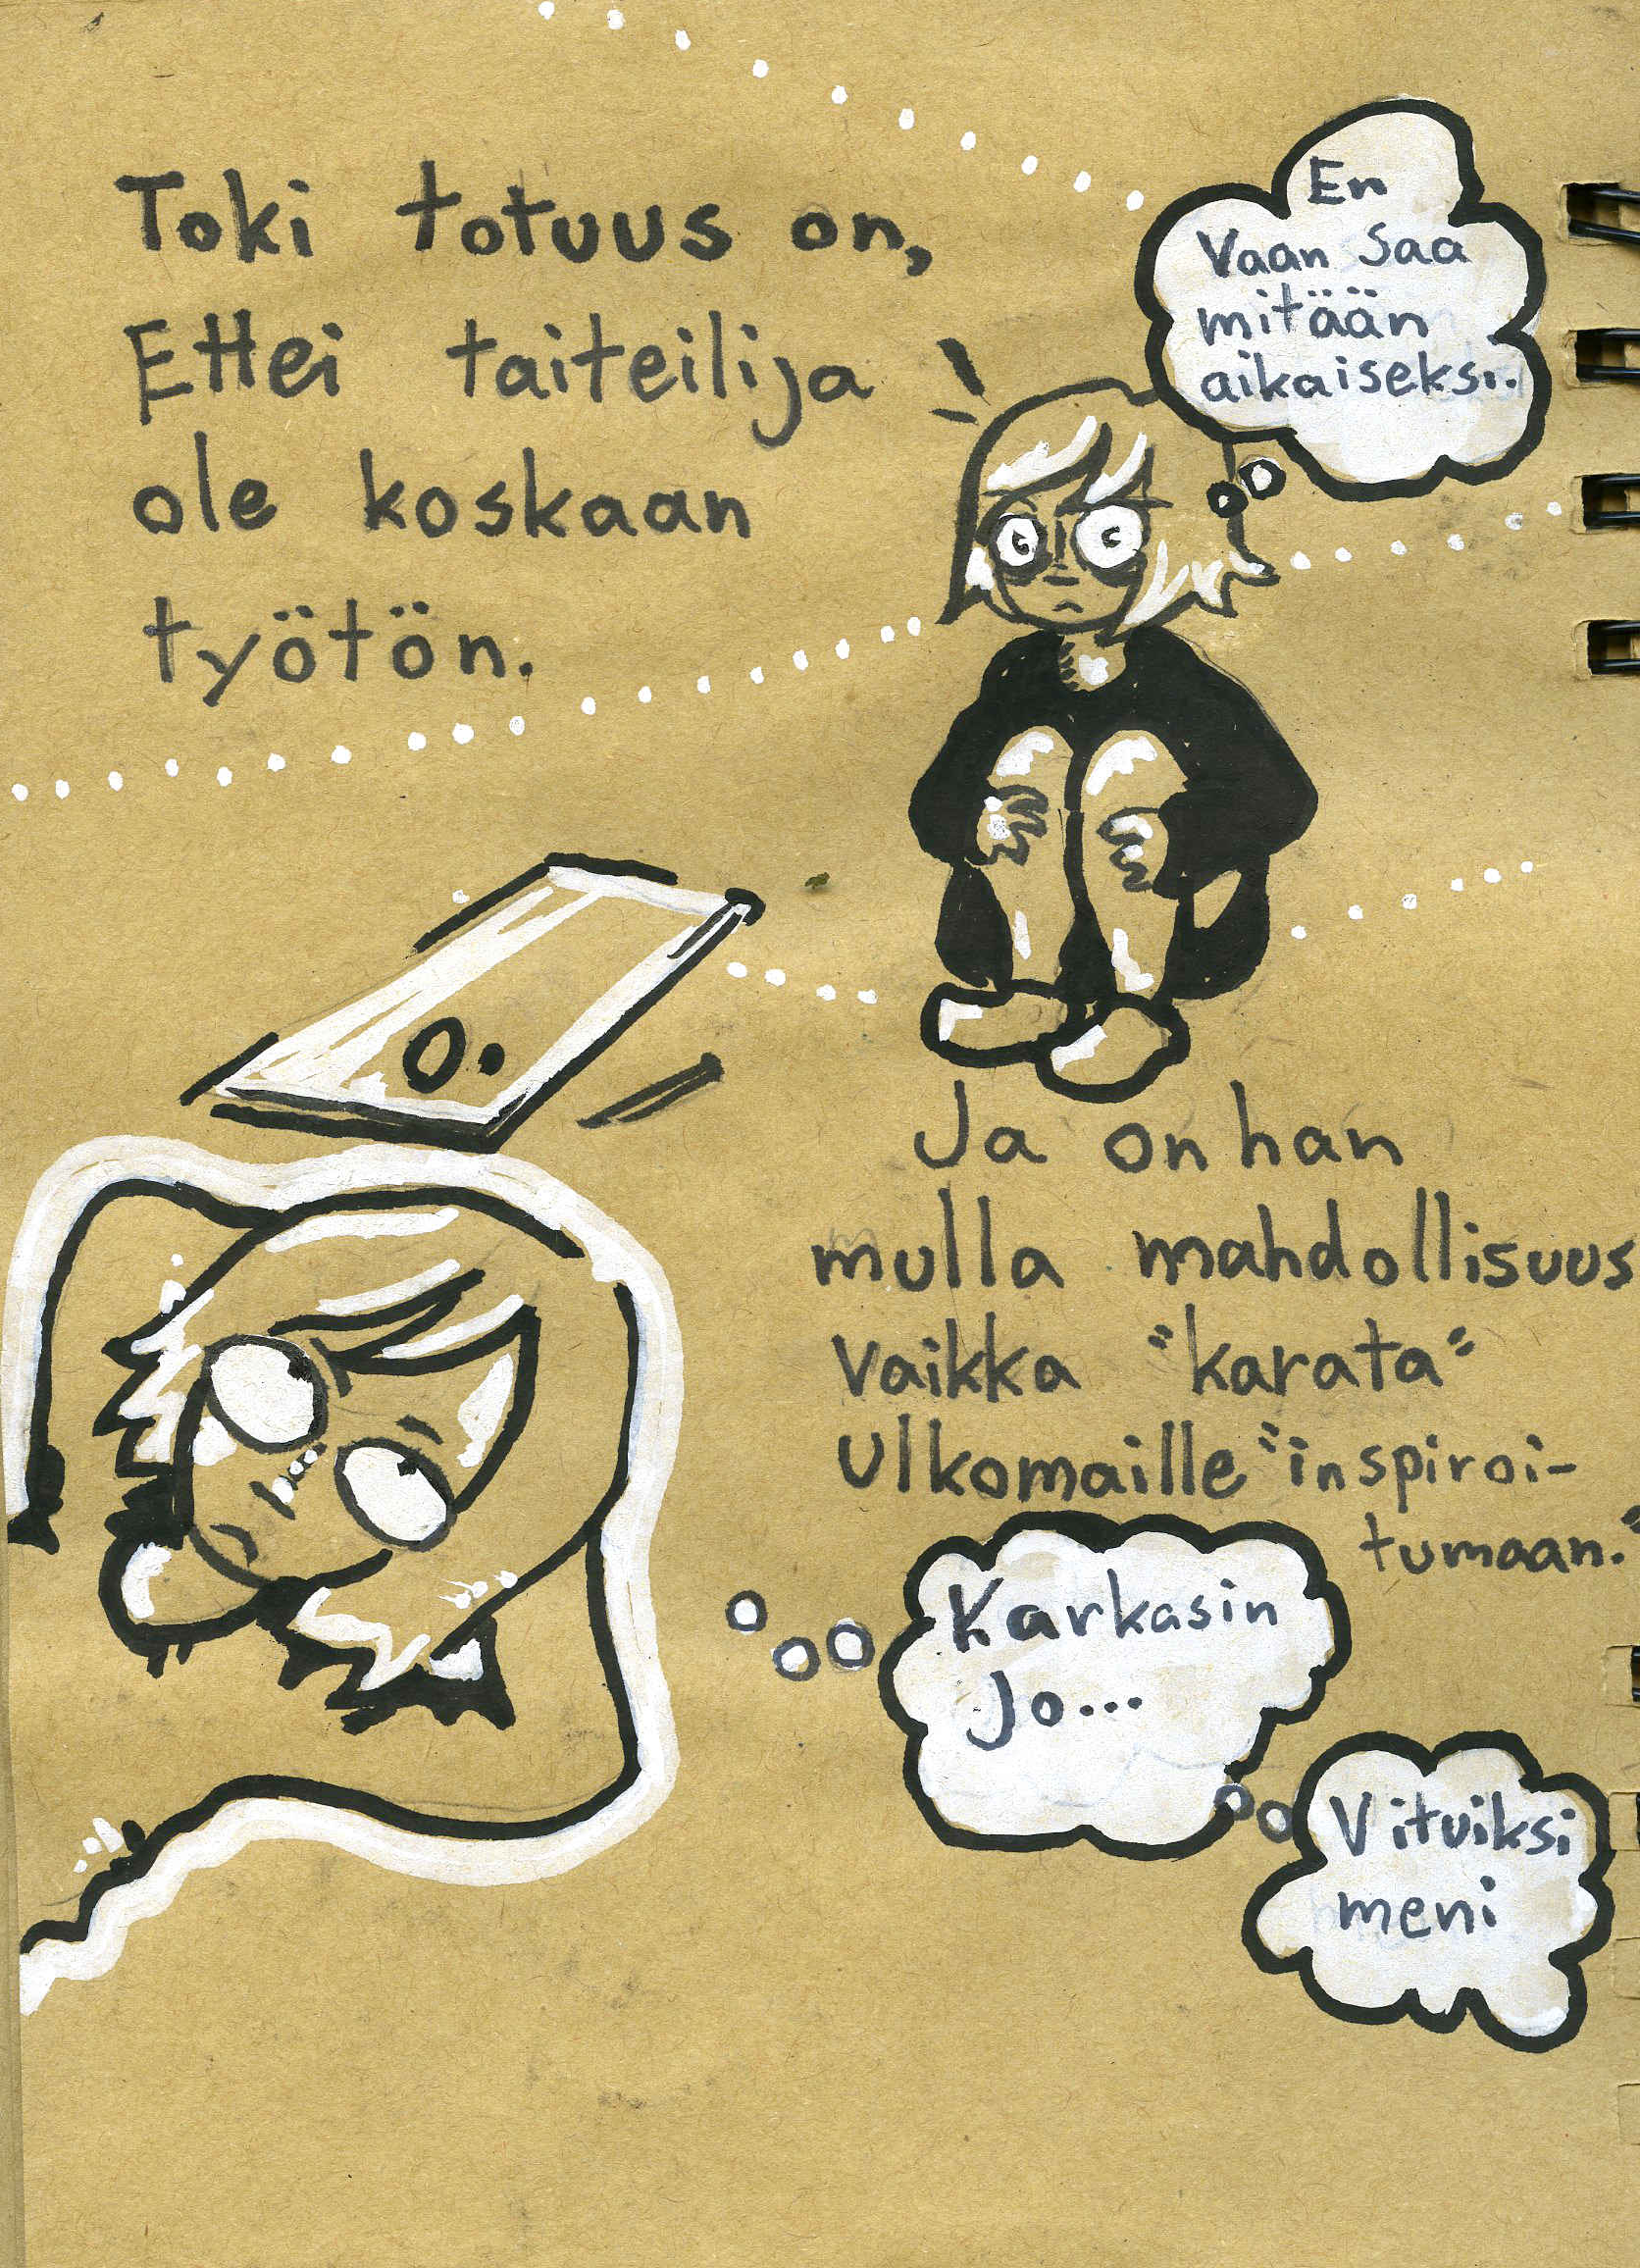 Toki totuus on,
Ettei taiteilija
ole koskaan
työtön.
En
vaan saa
mitään
aikaiseksi..
Ja onhan
mulla mahdollisuus
vaikka "karata"
Ulkomaille "inspiroi-
tumaan."
Karkasin
jo...
Vituiksi
meni